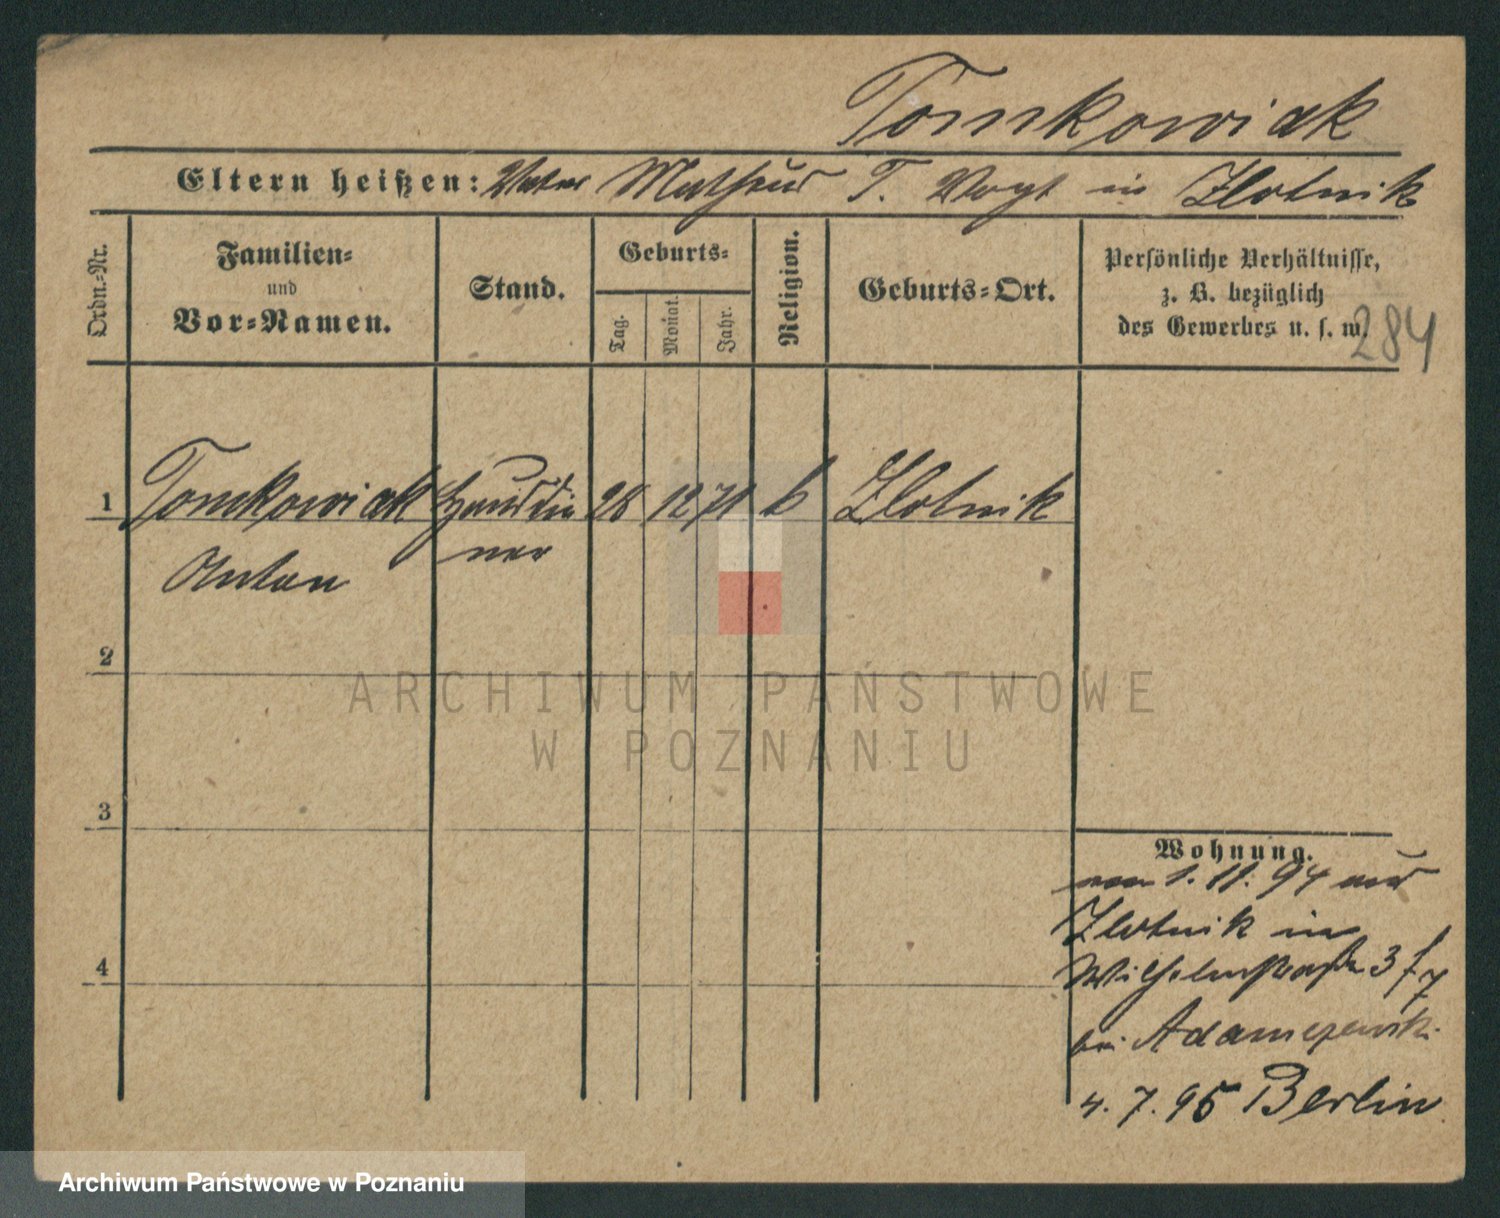 Tomkowiak
Eltern heißen: Vater Matheus T. Vogt in Zlotnik
Ordn.-Nr.
Familien-
und
Vor-Namen.
Stand.
Geburts-
Tag.
Monat.
Jahr.
Religion.
Geburts-Ort.
Persönliche Verhältnisse,
z. B. bezüglich
des Gewerbes u. s. w.
284
1 Tomkowiak Hausdie 28 12 71 k Zlotnik
Anton ner
2
3
4
ARCHIWUM PAŃSTWOWE
W POZNANIU
Wohnung.
vom 1. 11. 94 aus
Zlotnik in
Wilhelmstraße 3
bei Adamczewski
4. 7. 95 Berlin
Archiwum Państwowe w Poznaniu